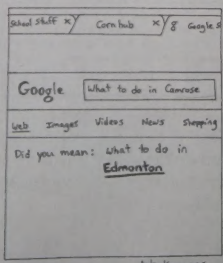 School Stuff × Corn hub × 8 Google S
Google What to do in Camrose
Web Images Videos News Shopping
Did you mean: what to do in
Edmonton